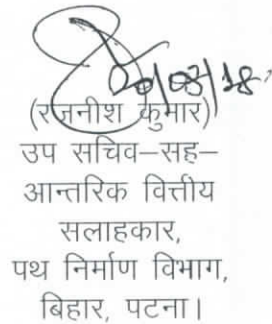 20/03/18
(रजनीश कुमार)
उप सचिव–सह–
आन्तरिक वित्तीय
सलाहकार,
पथ निर्माण विभाग,
बिहार, पटना।